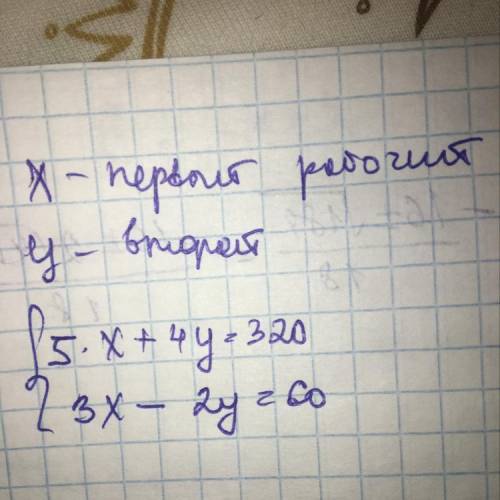 x - первый рабочий
y - второй
5·x + 4y = 320
3x - 2y = 60